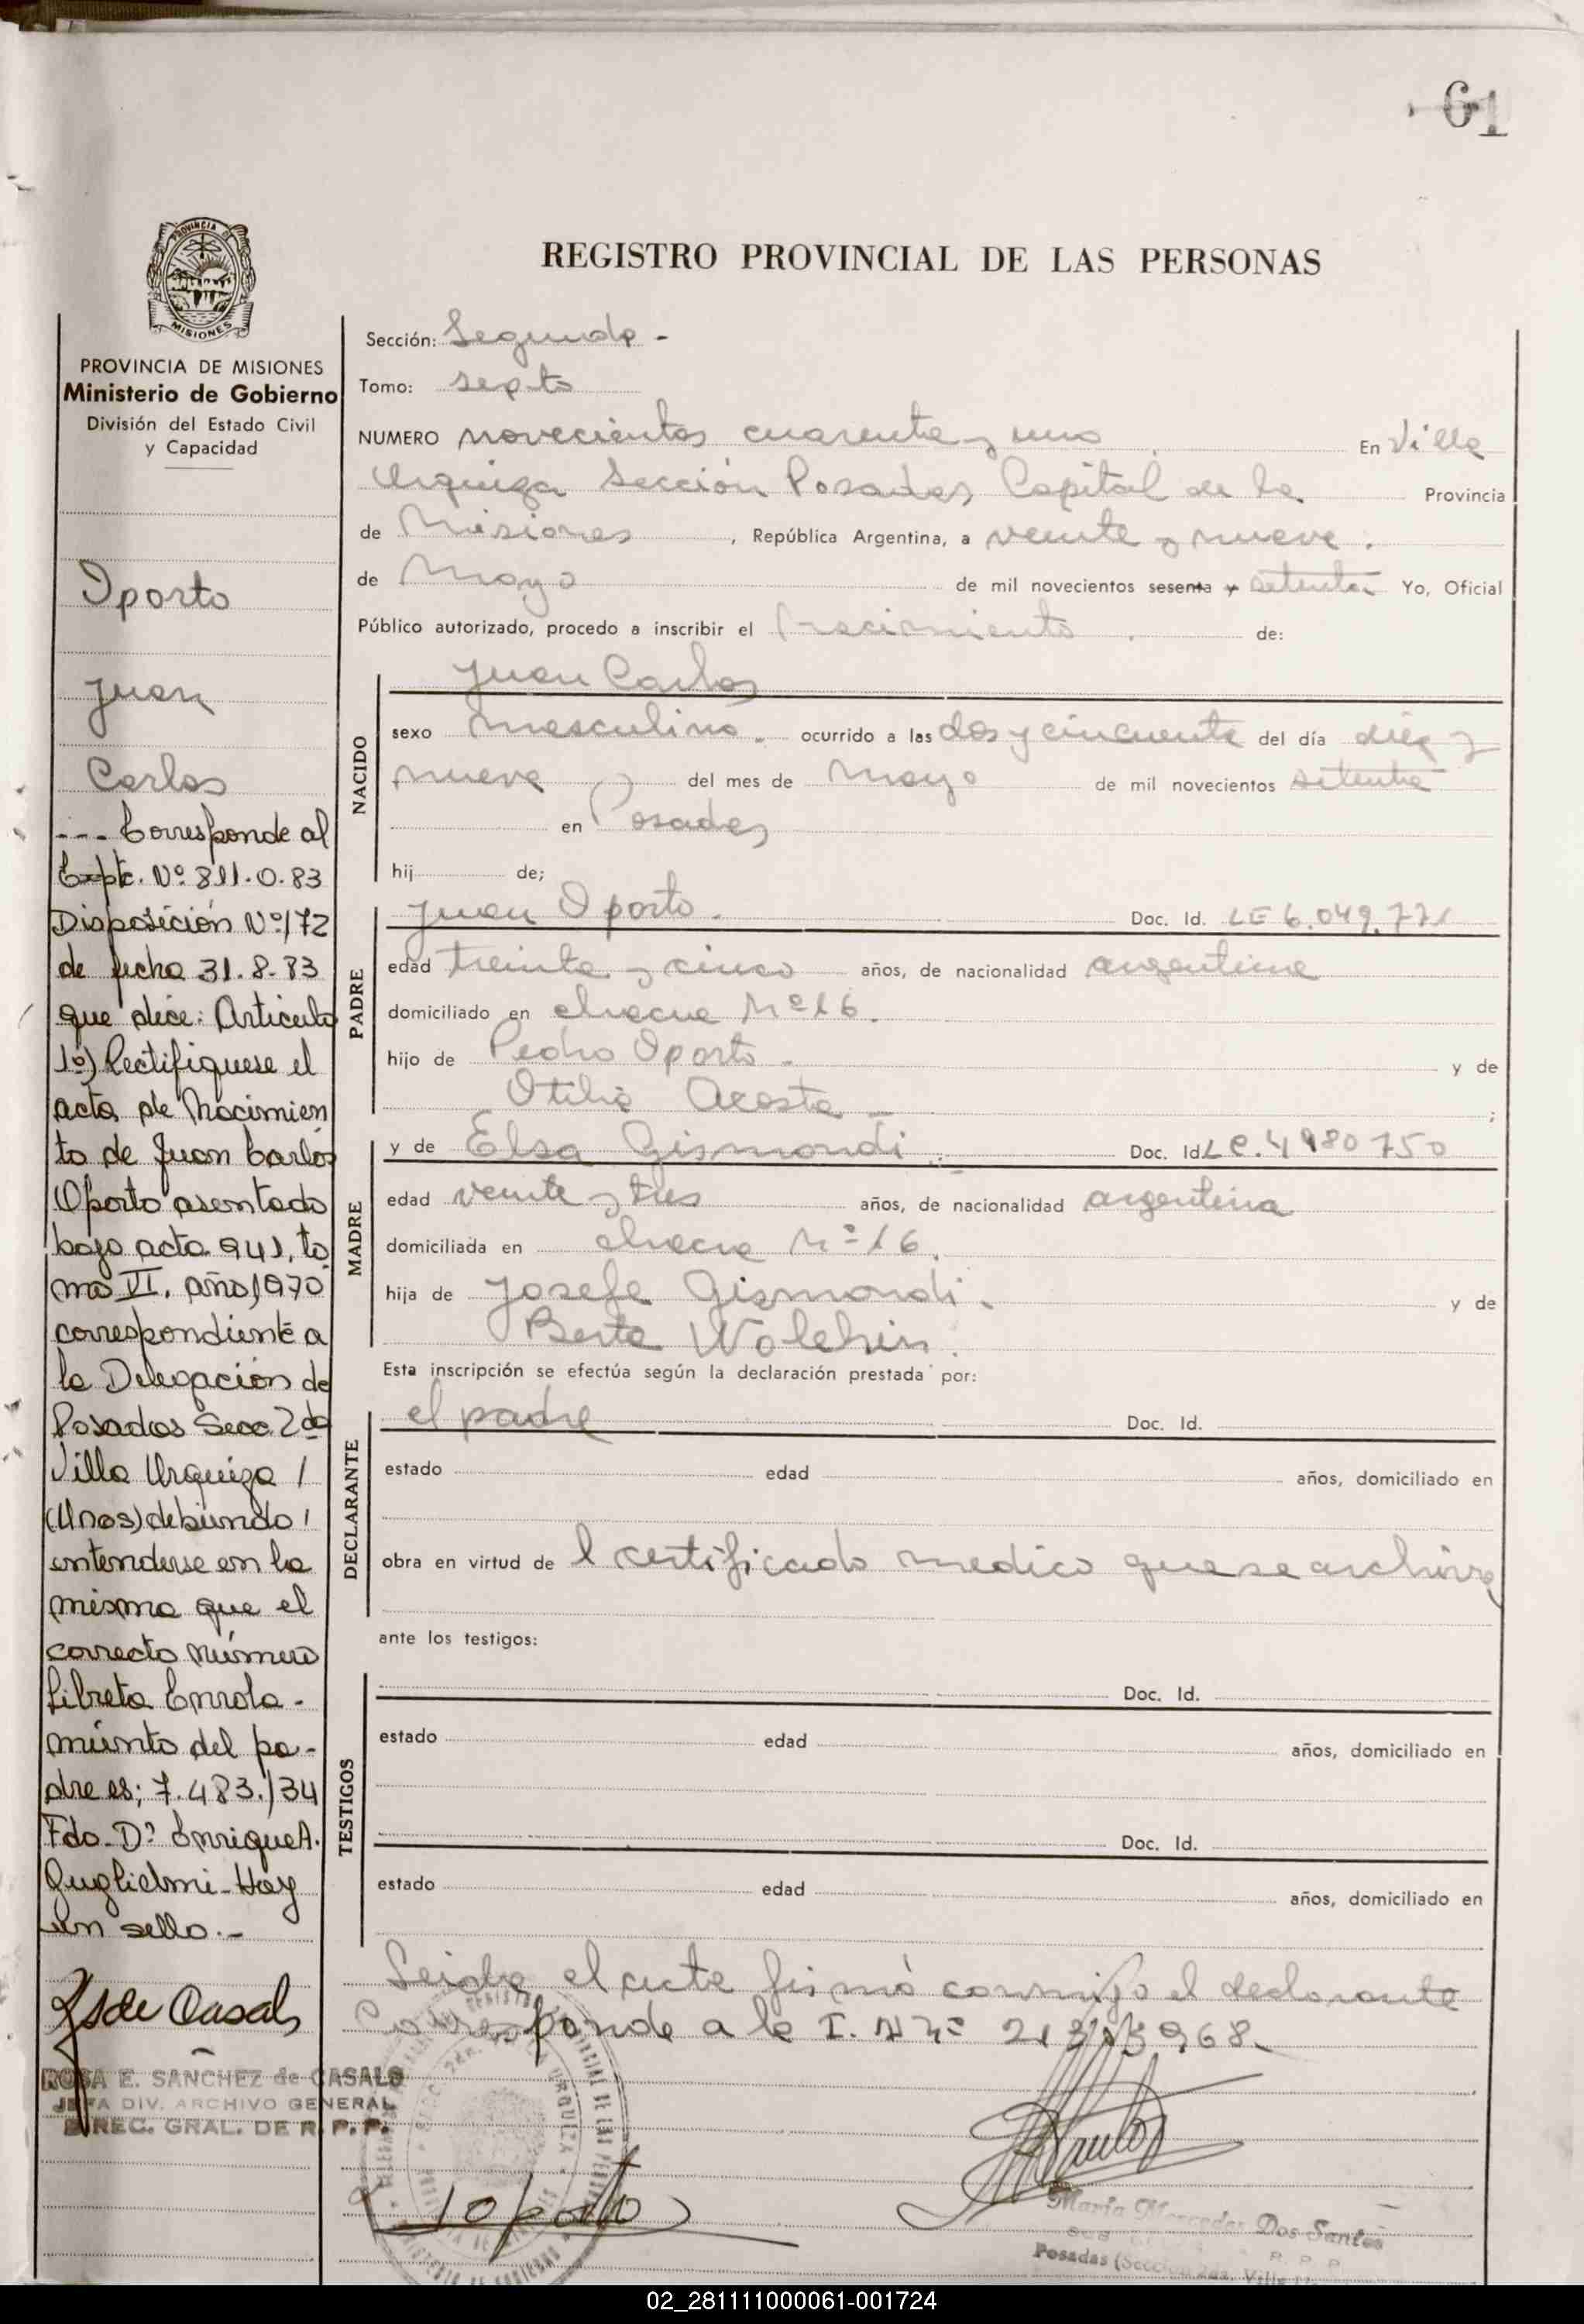 61
REGISTRO PROVINCIAL DE LAS PERSONAS
MISIONES
PROVINCIA DE MISIONES
Ministerio de Gobierno
División del Estado Civil
y Capacidad
Oporto
Juan
Carlos
--- Corresponde al
Expte. Nº 811.O.83
Disposición Nº 172
de fecha 31.8.83
que dice: Articulo
1º) Rectifiquese el
acta de Nacimien
to de Juan Carlos
Oporto asentado
bajo acta 941, to
mo VI, año 1970
correspondiente a
la Delegación de
Posadas Secc. 2da
Villa Urquiza /
(Mnes) debiendo
entenderse en la
misma que el
correcto número
Libreta Enrola-
miento del pa-
dre es; 7.483.134
Fdo. Dº Enrique A.
Guglielmi - Hay
un sello.-
ROSA E. SANCHEZ de CASALS
JEFA DIV. ARCHIVO GENERAL
DIREC. GRAL. DE R. P. P.
Sección: Segunda -
Tomo: septo
NUMERO novecientos cuarenta y uno En Villa
Urquiza Sección Posadas Capital de la Provincia
de Misiones, República Argentina, a veinte y nueve.
de Mayo de mil novecientos sesenta y setenta Yo, Oficial
Público autorizado, procedo a inscribir el nacimiento de:
NACIDO
Juan Carlos
sexo masculino. ocurrido a las dos y cincuenta del día diez y
nueve del mes de Mayo de mil novecientos setenta
en Posadas
hij de;
PADRE
Juan Oporto. Doc. Id. LE 6.049.771
edad treinta y cinco años, de nacionalidad argentina
domiciliado en chacra Nº 16.
hijo de Pedro Oporto - y de
Otilia Acosta - ;
MADRE
y de Elsa Gismondi. Doc. Id. L C. 4980750
edad veinte y tres años, de nacionalidad argentina
domiciliada en chacra Nº 16.
hija de Josefa Gismondi. y de
Berta Wolchin.
Esta inscripción se efectúa según la declaración prestada por:
DECLARANTE
el padre Doc. Id.
estado edad años, domiciliado en
obra en virtud de l certificado medico que se archiva
ante los testigos:
TESTIGOS
Doc. Id.
estado edad años, domiciliado en
Doc. Id.
estado edad años, domiciliado en
Leida el acta firmó conmigo el declarante
Corresponde a la I. N Nº
J Oporto
María Mercedes Dos Santos
Posadas
02_281111000061-001724